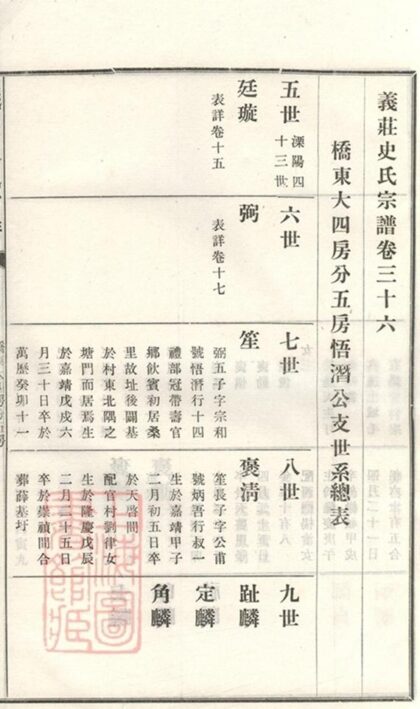 義莊史氏宗譜卷三十六
橋東大四房分五房悟濳公支世系總表
五世
溧陽四
十三世
廷璇
表詳卷十五
六世
弼
表詳卷十七
七世
笙
弼五子字宗和
號悟濳行十四
禮部冠帶壽官
鄉飲賓初居桑
里故址後闢基
於村東北隅之
塘門而居焉生
於嘉靖戊戌六
月三十日卒於
萬歷癸卯十一
八世
褒清
笙長子字公甫
號炳吾行叔一
生於嘉靖甲子
二月初五日卒
於天啓間
配官村劉律女
生於隆慶戊辰
二月二十五日
卒於崇禎間合
葬薛基圩
九世
趾麟
定麟
角麟